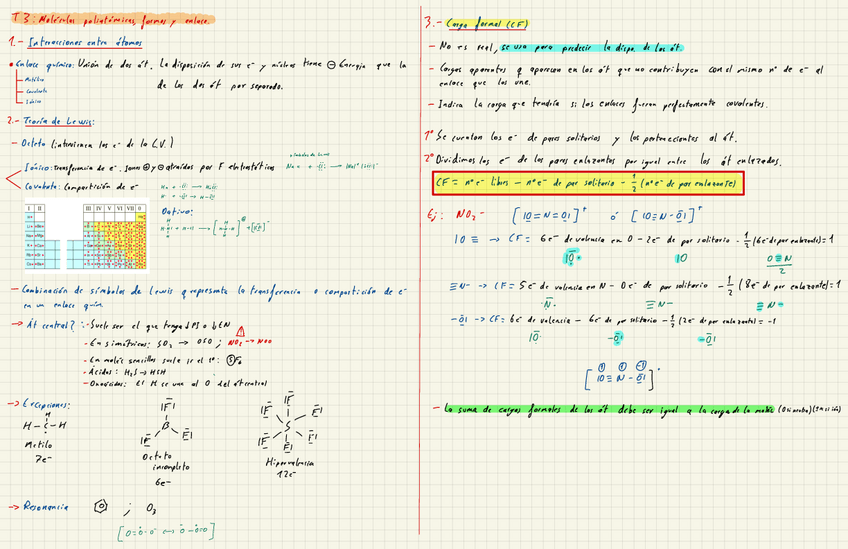 T3: Moléculas poliatómicas, formas y enlace.
1.- Interacciones entre átomos
Enlace químico: Unión de dos át. La disposición de sus e⁻ y núcleos tiene ⊖ Energía que la
de los dos át por separado.
Metálico
Covalente
Iónico
2.- Teoría de Lewis:
- Octeto (intervienen los e⁻ de la C.V.)
Iónico: Transferencia de e⁻. Iones ⊕ y ⊖ atraídos por F eletrostáticas
Covalente: Compartición de e⁻
I II III IV V VI VII 0
Dativo:
- Combinación de símbolos de Lewis q representa la transferencia o compartición de e⁻
en un enlace quím.
-> Át central? :- Suele ser el que tenga ↓PI o ↓EN
- En simétricas: SO₂ → OSO ; NO₂ → NOO
- En moléc sencillas suele ir el 1º: SF₆
- Ácidos: H₂S → HSH
- Oxoácidos: El H se une al O del át central
-> Excepciones:
H - C - H
H
Metilo
7e⁻
|F|
B
|F F|
Octeto
incompleto
6e⁻
|F| F|
S
|F |F| F|
Hipervalencia
12e⁻
-> Resonancia ; O₃
[O=O-O ↔ O-O=O]
3.- Carga formal (CF)
- No es real, se usa para predecir la dispo. de los át
- Cargas aparentes q aparecen en los át que no contribuyen con el mismo nº de e⁻ al
enlace que los une.
- Indica la carga que tendría si los enlaces fueran perfectamente covalentes.
1º Se cuentan los e⁻ de pares solitarios y los pertenecientes al át.
2º Dividimos los e⁻ de los pares enlazantes por igual entre los át enlazados.
CF = nº e⁻ libres - nº e⁻ de par solitario - 1/2 (nº e⁻ de par enlazante)
Ej: NO₂⁻ [|O=N=O|]⁺ ó [|O≡N-O|]⁺
|O≡ -> CF= 6e⁻ de valencia en O - 2e⁻ de par solitario - 1/2 (6e⁻ de par enlazante)=1
|O· |O O≡N/2
≡N- -> CF= 5e⁻ de valencia en N - 0e⁻ de par solitario - 1/2 (8e⁻ de par enlazante)=1
·N· ≡N- ≡N-
-O| -> CF= 6e⁻ de valencia - 6e⁻ de par solitario - 1/2 (2e⁻ de par enlazante)= -1
|O· -O| -O|
[|O≡N-O|]⁺
- La suma de cargas formales de los át debe ser igual a la carga de la moléc (0 si neutro)(1 si ión)